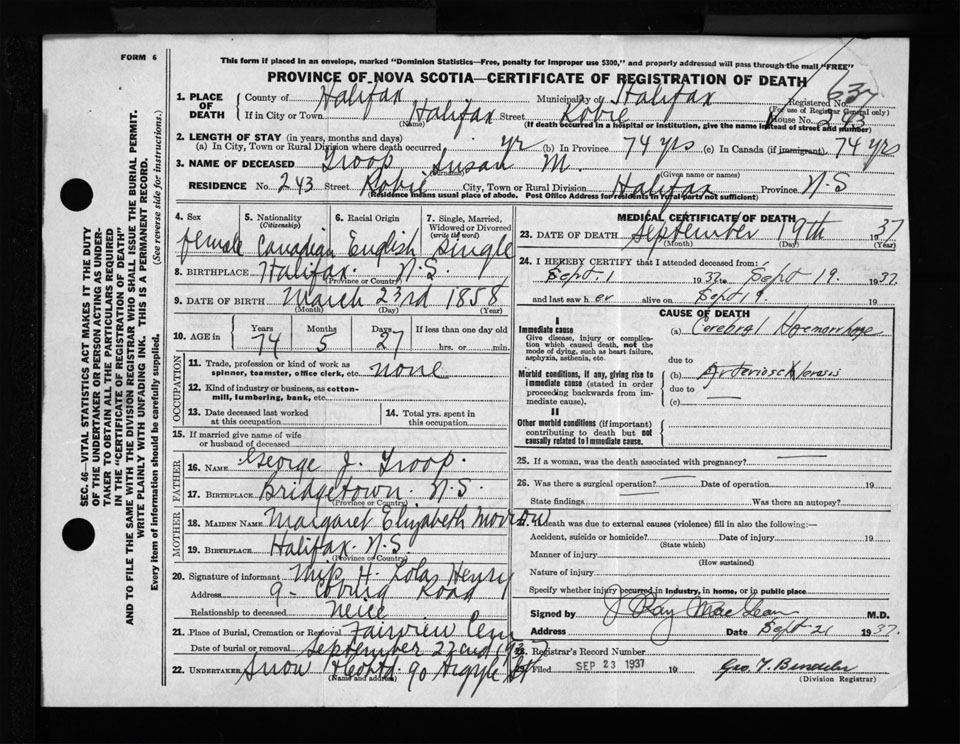 FORM 6
This form if placed in an envelope, marked "Dominion Statistics—Free, penalty for improper use $300," and properly addressed will pass through the mail "FREE"
PROVINCE OF NOVA SCOTIA—CERTIFICATE OF REGISTRATION OF DEATH
637
1. PLACE OF DEATH County of Halifax Municipality of Halifax Registered No.
(For use of Registrar General only)
If in City or Town Halifax Street Robie House No. 243
(Name) (If death occurred in a hospital or institution, give the name instead of street and number)
2. LENGTH OF STAY (in years, months and days)
(a) In City, Town or Rural Division where death occurred yr (b) In Province 74 yrs (c) In Canada (if immigrant) 74 yrs
3. NAME OF DECEASED Troop Susan M.
(Surname) (Given name or names)
RESIDENCE No. 243 Street Robie City, Town or Rural Division Halifax Province N-S
(Residence means usual place of abode. Post Office Address for residents in rural parts not sufficient)
4. Sex 5. Nationality (Citizenship) 6. Racial Origin 7. Single, Married, Widowed or Divorced (write the word)
female Canadian English Single
8. BIRTHPLACE Halifax. N.S.
(Province or Country)
9. DATE OF BIRTH March 23rd 1858
(Month) (Day) (Year)
10. AGE in Years Months Days If less than one day old
74 5 27 hrs. or min.
OCCUPATION
11. Trade, profession or kind of work as spinner, teamster, office clerk, etc. none
12. Kind of industry or business, as cotton-mill, lumbering, bank, etc.
13. Date deceased last worked at this occupation
14. Total yrs. spent in this occupation
15. If married give name of wife or husband of deceased
FATHER
16. NAME George J. Troop.
17. BIRTHPLACE Bridgetown. N.S.
(Province or Country)
MOTHER
18. MAIDEN NAME Margaret Elizabeth Morrow
19. BIRTHPLACE Halifax. N.S.
(Province or Country)
20. Signature of informant Miss H. Henry
Address 9- Coburg Road
Relationship to deceased Neice
21. Place of Burial, Cremation or Removal Fairview Cem
Date of burial or removal September 22nd 1937
22. UNDERTAKER Snow 90 Argyle St
(Name and address)
MEDICAL CERTIFICATE OF DEATH
23. DATE OF DEATH September 19th 1937
(Month) (Day) (Year)
24. I HEREBY CERTIFY that I attended deceased from:
Sept. 1 1937 to Sept 19. 1937.
and last saw h er alive on Sept 19. 19
CAUSE OF DEATH
I
Immediate cause (a) Cerebral Haemorrhage
Give disease, injury or complication which caused death, not the mode of dying, such as heart failure, asphyxia, asthenia, etc.
due to
Morbid conditions, if any, giving rise to immediate cause (stated in order proceeding backwards from immediate cause). (b) Arteriosclerosis
due to
(c)
II
Other morbid conditions (if important) contributing to death but not causally related to immediate cause.
25. If a woman, was the death associated with pregnancy?
26. Was there a surgical operation? Date of operation 19
State findings Was there an autopsy?
death was due to external causes (violence) fill in also the following:—
Accident, suicide or homicide? Date of injury 19
(State which)
Manner of injury
(How sustained)
Nature of injury
Specify whether injury occurred in Industry, in home, or in public place
Signed by J Ray MacLean M.D.
Address Date Sept 21 1937.
28. Registrar's Record Number
Filed SEP 23 1937 19
(Division Registrar)
SEC. 46—VITAL STATISTICS ACT MAKES IT THE DUTY OF THE UNDERTAKER OR PERSON ACTING AS UNDERTAKER TO OBTAIN ALL THE PARTICULARS REQUIRED IN THE "CERTIFICATE OF REGISTRATION OF DEATH"
AND TO FILE THE SAME WITH THE DIVISION REGISTRAR WHO SHALL ISSUE THE BURIAL PERMIT.
WRITE PLAINLY WITH UNFADING INK. THIS IS A PERMANENT RECORD.
Every item of information should be carefully supplied. (See reverse side for instructions.)